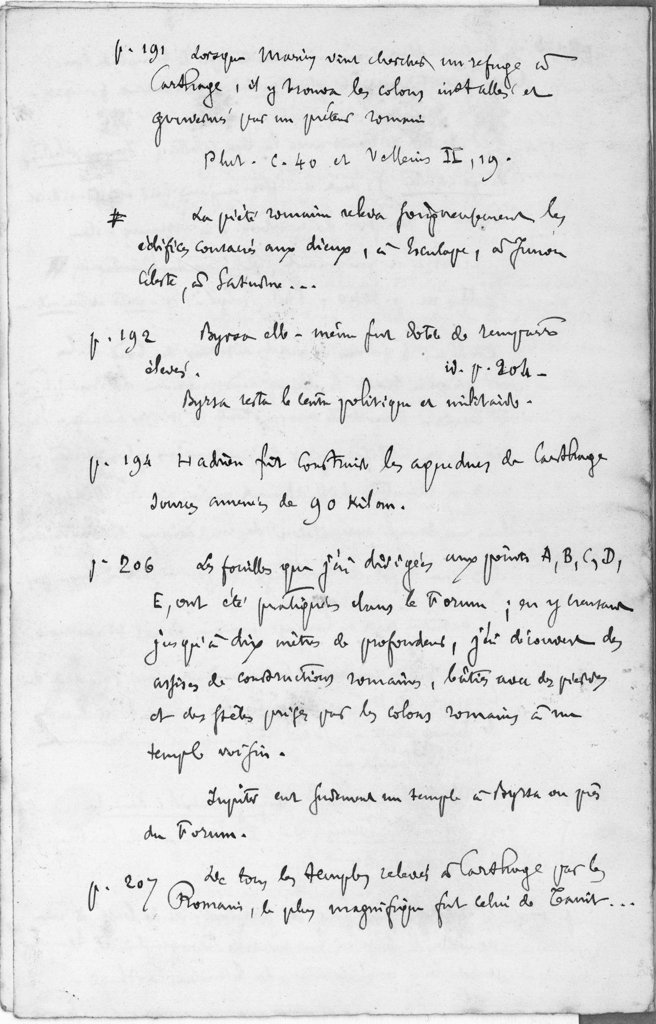 p. 191 Lorsque Marius vint chercher un refuge à
Carthage, il y trouva les colons installés et
gouvernés par un préteur romain
Plut. C. 40 et Velleius II, 19.
# La piété romaine releva les
édifices consacrés aux dieux, à Esculape, à Junon
Céleste, à Saturne...
p. 192 Byrsa elle-même fut dotée de remparts
élevés. id. p. 204_
Byrsa resta le centre politique et militaire.
p. 194 Hadrien fit construire les aqueducs de Carthage
sources amenées de 90 kilom.
p. 206 Les fouilles que j'ai dirigées aux points A, B, C, D,
E, ont été pratiquées dans le Forum ; en y creusant
jusqu'à dix mètres de profondeur, j'ai découvert des
assises de constructions romaines, bâties avec des pierres
et des stèles prises par les colons romains à un
temple voisin.
Jupiter eut un temple à Byrsa ou près
du Forum.
p. 207 De tous les temples relevés à Carthage par les
Romains, le plus magnifique fut celui de Tanit...